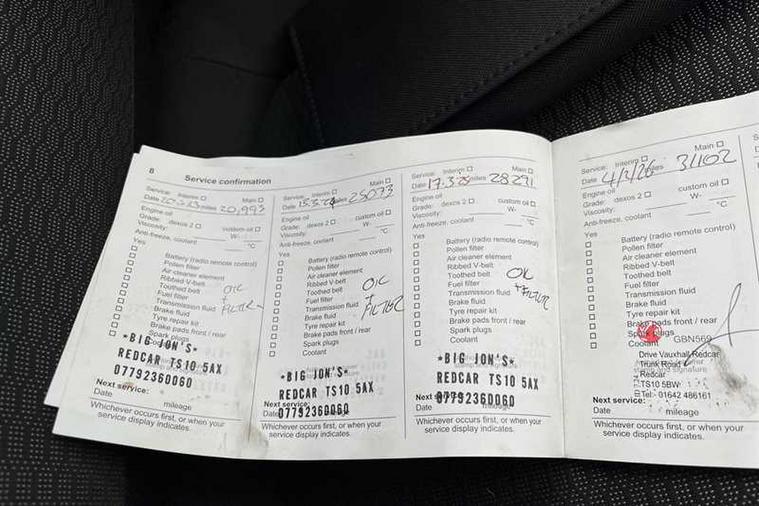 8 Service confirmation
Service: Interim Main
Date 20.3.23 miles 20,993
Engine oil
Grade: dexos 2 custom oil
Viscosity: W-
Anti-freeze, coolant °C
Yes
Battery (radio remote control)
Pollen filter
Air cleaner element
Ribbed V-belt
Toothed belt
Fuel filter
Transmission fluid
Brake fluid
Tyre repair kit
Brake pads front / rear
Spark plugs
OIL
+
FILTER
*BIG JON'S*
REDCAR TS10 5AX
07792360060
Next service:
Date mileage
Whichever occurs first, or when your
service display indicates.
Service: Interim Main
Date 15.3.24 miles 25073
Engine oil
Grade: dexos 2 custom oil
Viscosity: W-
Anti-freeze, coolant °C
Yes
Battery (radio remote control)
Pollen filter
Air cleaner element
Ribbed V-belt
Toothed belt
Fuel filter
Transmission fluid
Brake fluid
Tyre repair kit
Brake pads front / rear
Spark plugs
Coolant
OIL
+
FILTER
*BIG JON'S*
REDCAR TS10 5AX
Next service:
07792360060
Date
Whichever occurs first, or when your
service display indicates.
Service: Interim Main
Date 17.3.25 miles 28291
Engine oil
Grade: dexos 2 custom oil
Viscosity: W-
Anti-freeze, coolant °C
Yes
Battery (radio remote control)
Pollen filter
Air cleaner element
Ribbed V-belt
Toothed belt
Fuel filter
Transmission fluid
Brake fluid
Tyre repair kit
Brake pads front / rear
Spark plugs
Coolant
OIL
+ FILTER
*BIG JON'S*
REDCAR TS10 5AX
Next service:
07792360060
Date mileage
Whichever occurs first, or when your
service display indicates.
Service: Interim Main
Date 4/3/26 31102
Engine oil
Grade: dexos 2 custom oil
Viscosity: W-
Anti-freeze, coolant °C
Yes
Battery (radio remote control)
Pollen filter
Air cleaner element
Ribbed V-belt
Toothed belt
Fuel filter
Transmission fluid
Brake fluid
Tyre repair kit
Brake pads front / rear
Spark plugs
Coolant
GBN569
Drive Vauxhall Redcar
Trunk Road
Redcar
TS10 5BW
Tel: 01642 486161
Next service:
Date mileage
Whichever occurs first, or when your
service display indicates.